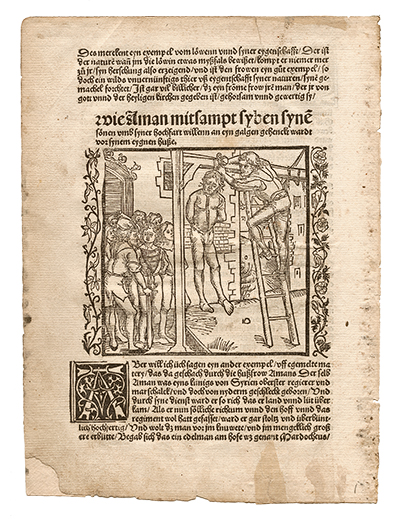 Des merckent eyn exempel vom löwenn vnnd syner eygenschafft / Der ist
der nature wañ jm die löwin etwas myßfals bewißet / kompt er niemer mer
zů jr / syn herschung also erzeigend / vnd ist den frowen eyn gůt exempel / so
doch ein wilds vnuernünfftigs thier vß eygenschafft syner naturen / syne ge-
machel forchtet / Ist gar vil billicher / dz eyn frõme frow jrẽ man / der jr von
gott vnnd der heyligen kirchen gegeben ist / gehorsam vnnd gewertig sy /
wie Aman mitsampt syben synẽ
sönen vmb syner hochfart willenn an eyn galgen gehenckt wardt
vor synem eygnen huße.
Aber will ich üch sagen eyn ander exempel / vff egemelte ma
tery / das da geschach durch die hußfrow Amans Der selb
Aman was eyns künigs von Syrien oberster regierer vnd
marschalck / vnd doch von nyderm geschlecht geboren / Vnd
durch syne dienst ward er so rich das er land vnnd lüt über
kam / Als er nun sölliche richtum vnnd den hoff vnnd das
regiment wol hatt gefasset / ward er gar stoltz vnd überbünt-
lich hochfertig / Vnd wolt dz man vor jm knuwete / vnd jm mengklich groß
ere erbütte / Begab sich das ein edelman am hofe wz genant Mardocheus /